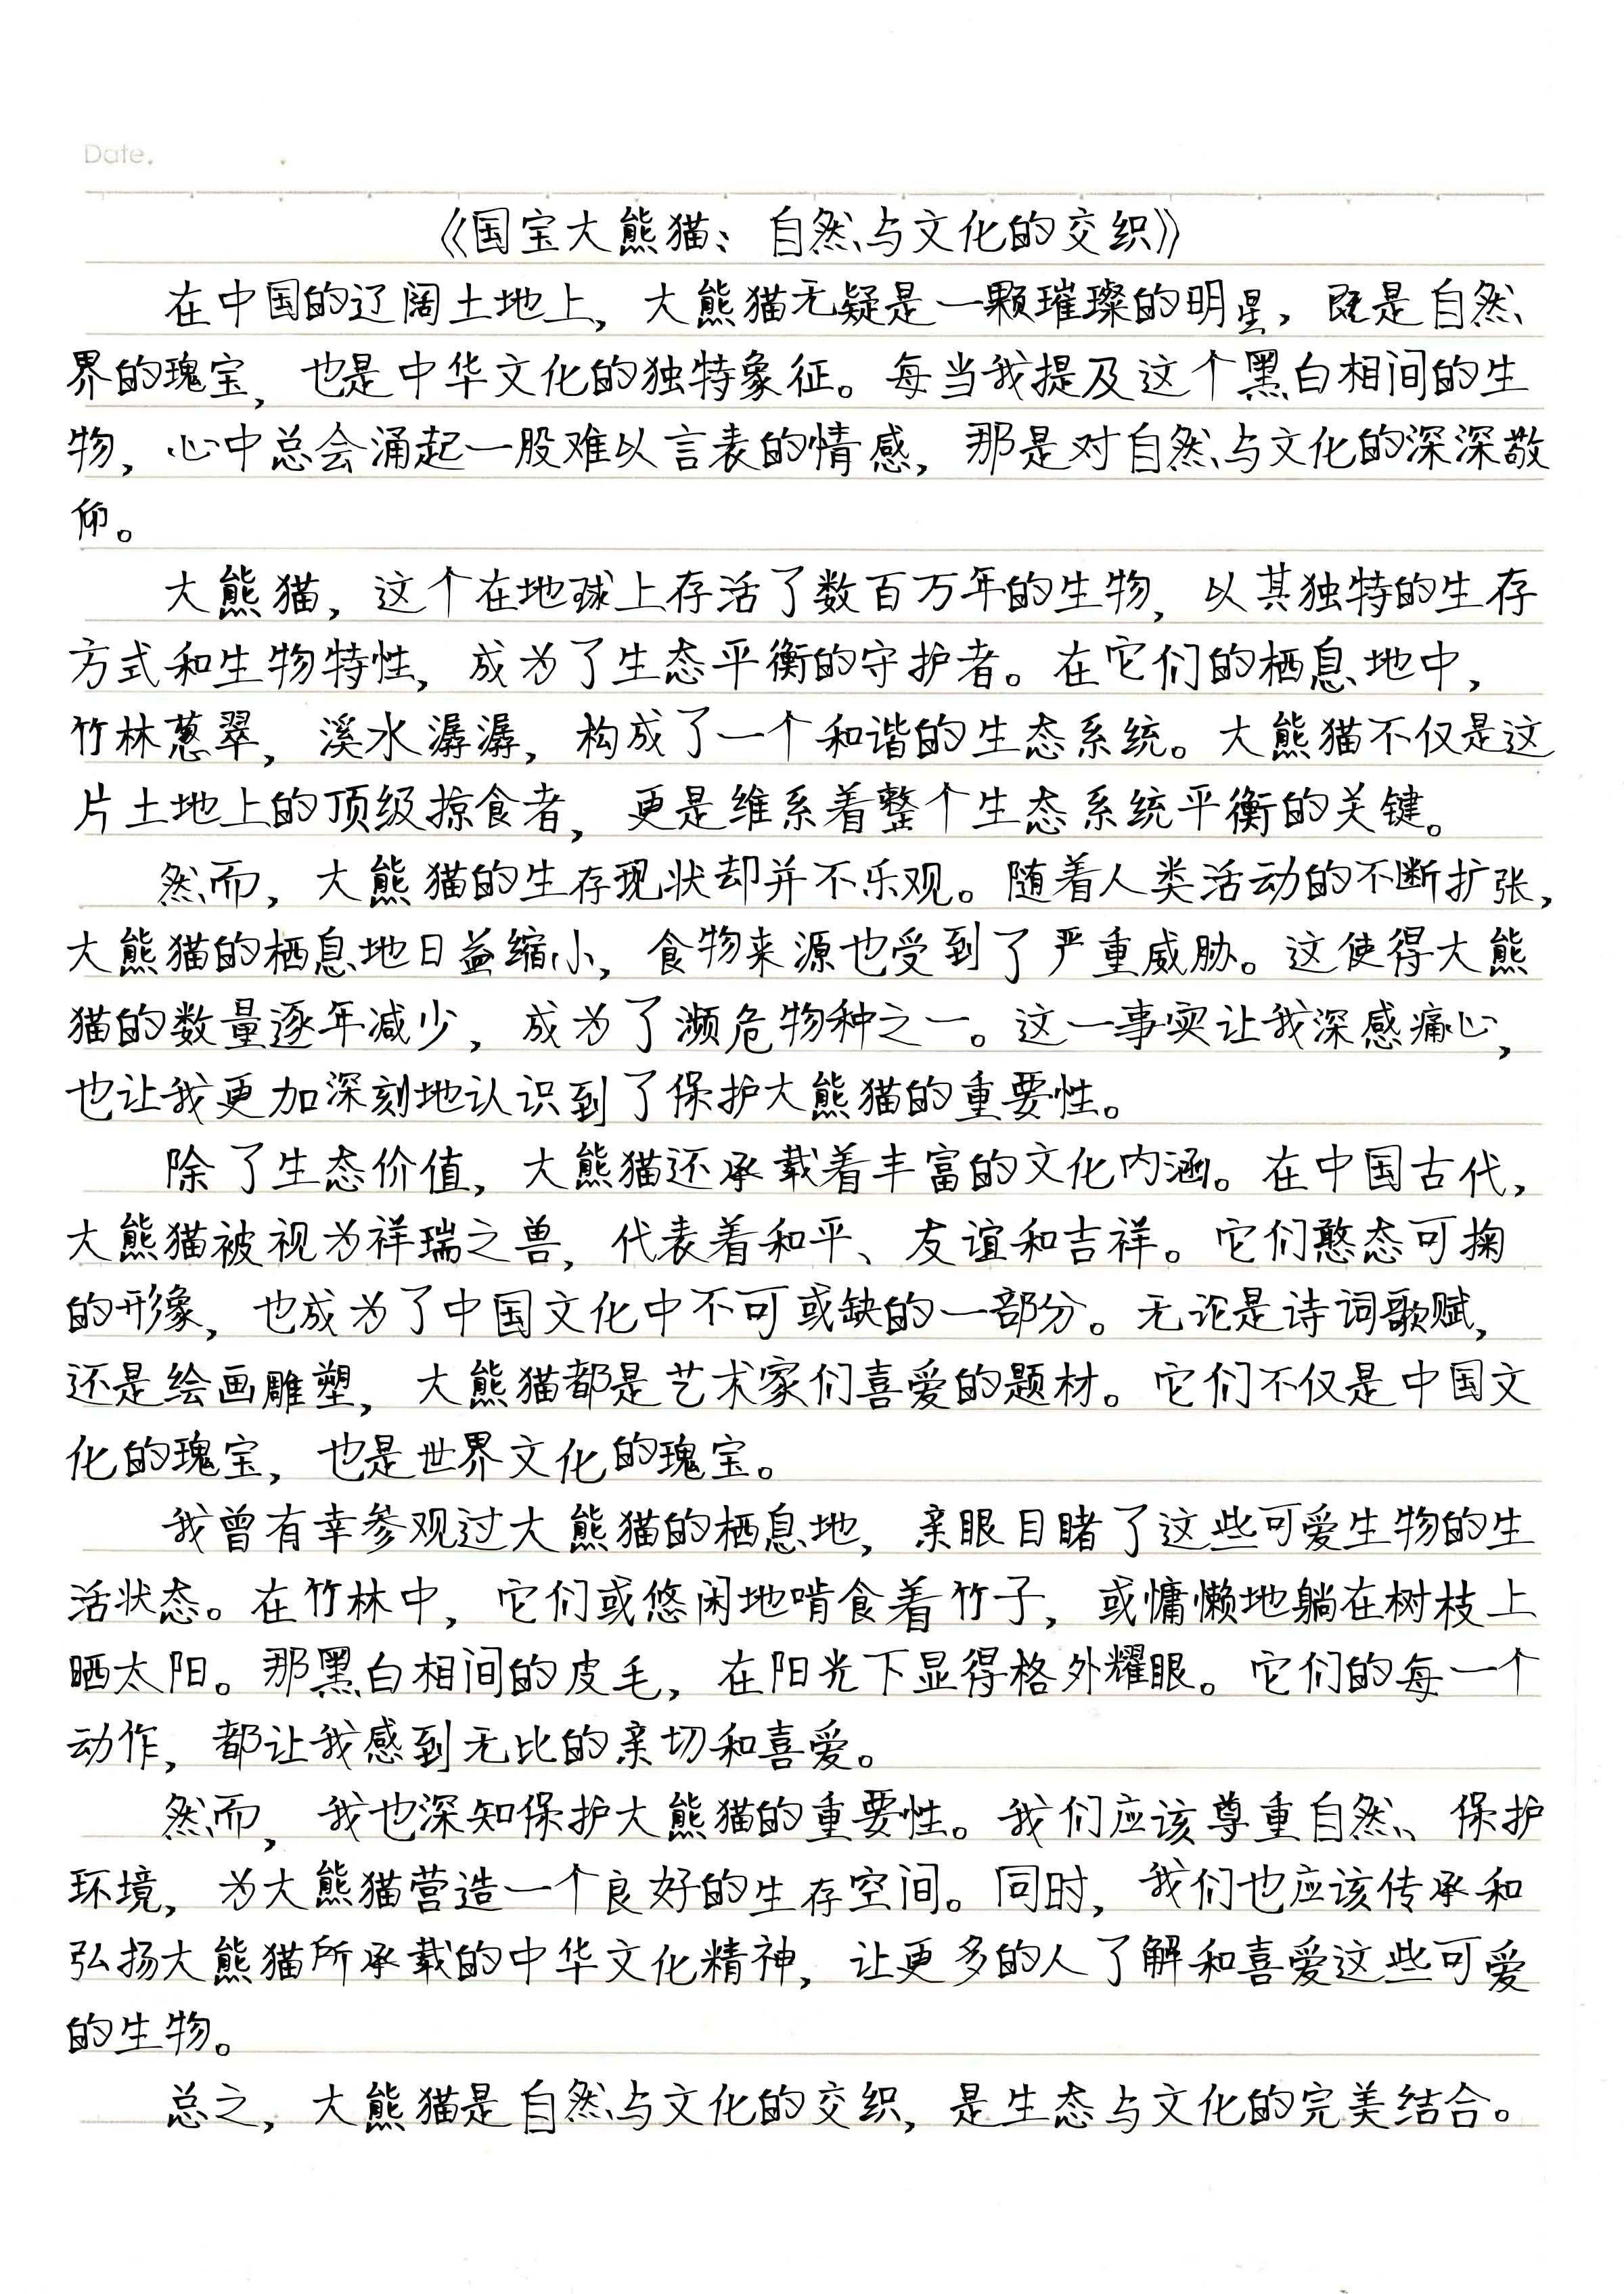 Date.
《国宝大熊猫：自然与文化的交织》
在中国的辽阔土地上，大熊猫无疑是一颗璀璨的明星，既是自然
界的瑰宝，也是中华文化的独特象征。每当我提及这个黑白相间的生
物，心中总会涌起一股难以言表的情感，那是对自然与文化的深深敬
仰。
大熊猫，这个在地球上存活了数百万年的生物，以其独特的生存
方式和生物特性，成为了生态平衡的守护者。在它们的栖息地中，
竹林葱翠，溪水潺潺，构成了一个和谐的生态系统。大熊猫不仅是这
片土地上的顶级掠食者，更是维系着整个生态系统平衡的关键。
然而，大熊猫的生存现状却并不乐观。随着人类活动的不断扩张，
大熊猫的栖息地日益缩小，食物来源也受到了严重威胁。这使得大熊
猫的数量逐年减少，成为了濒危物种之一。这一事实让我深感痛心，
也让我更加深刻地认识到了保护大熊猫的重要性。
除了生态价值，大熊猫还承载着丰富的文化内涵。在中国古代，
大熊猫被视为祥瑞之兽，代表着和平、友谊和吉祥。它们憨态可掬
的形象，也成为了中国文化中不可或缺的一部分。无论是诗词歌赋，
还是绘画雕塑，大熊猫都是艺术家们喜爱的题材。它们不仅是中国文
化的瑰宝，也是世界文化的瑰宝。
我曾有幸参观过大熊猫的栖息地，亲眼目睹了这些可爱生物的生
活状态。在竹林中，它们或悠闲地啃食着竹子，或慵懒地躺在树枝上
晒太阳。那黑白相间的皮毛，在阳光下显得格外耀眼。它们的每一个
动作，都让我感到无比的亲切和喜爱。
然而，我也深知保护大熊猫的重要性。我们应该尊重自然、保护
环境，为大熊猫营造一个良好的生存空间。同时，我们也应该传承和
弘扬大熊猫所承载的中华文化精神，让更多的人了解和喜爱这些可爱
的生物。
总之，大熊猫是自然与文化的交织，是生态与文化的完美结合。